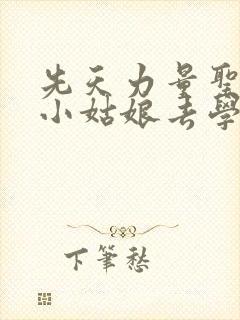 先天力量聖
小姑娘去學
下筆愁